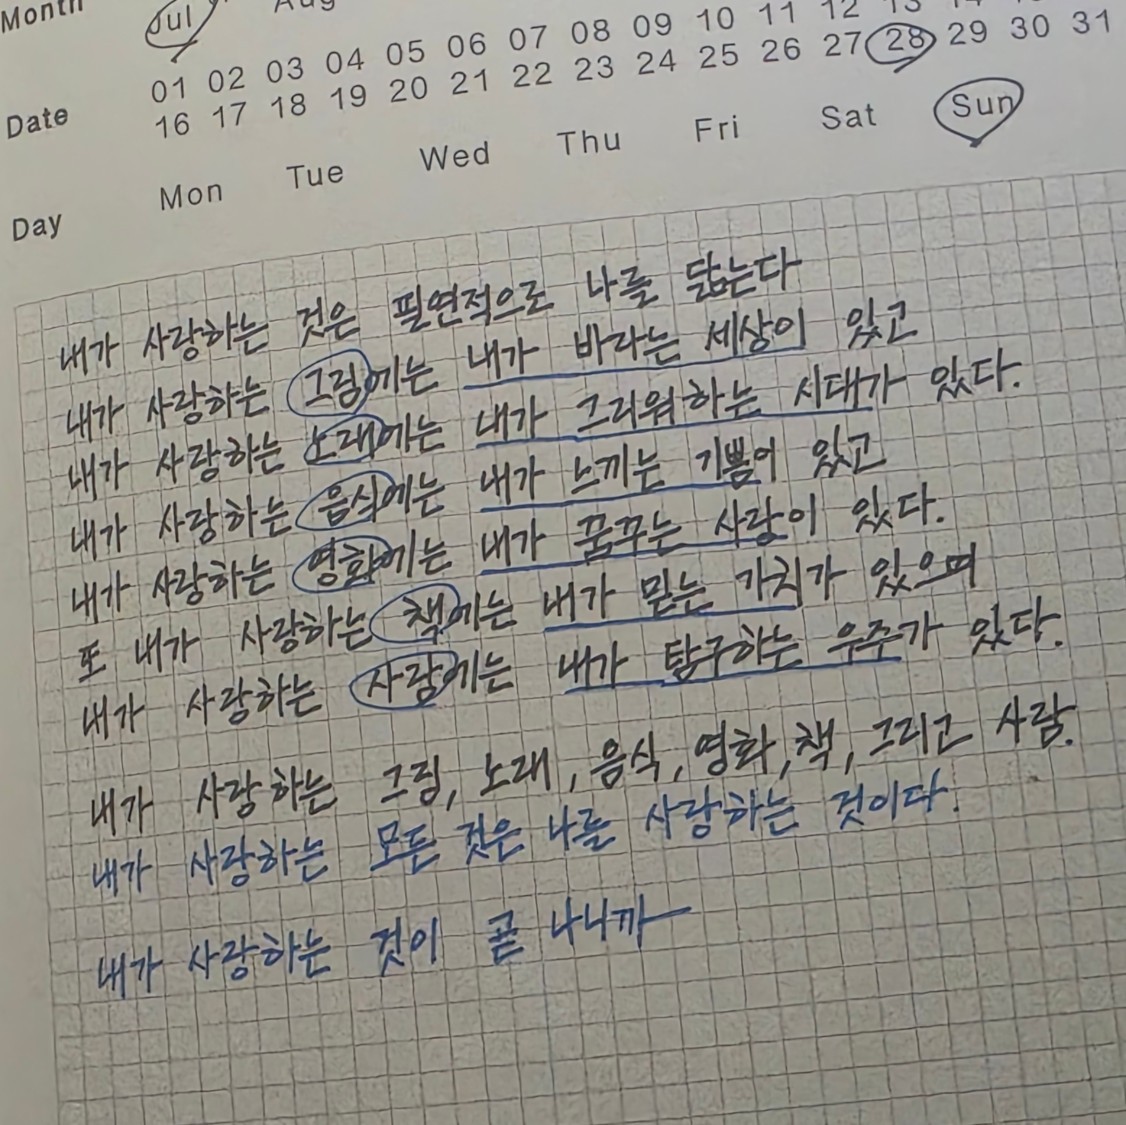 Month Jul Aug
01 02 03 04 05 06 07 08 09 10 11 12 13 14
Date 16 17 18 19 20 21 22 23 24 25 26 27 28 29 30 31
Day Mon Tue Wed Thu Fri Sat Sun
내가 사랑하는 것은 필연적으로 나를 닮는다
내가 사랑하는 그림에는 내가 바라는 세상이 있고
내가 사랑하는 노래에는 내가 그리워하는 시대가 있다.
내가 사랑하는 음식에는 내가 느끼는 기쁨이 있고
내가 사랑하는 영화에는 내가 꿈꾸는 사랑이 있다.
또 내가 사랑하는 책에는 내가 믿는 가치가 있으며
내가 사랑하는 사람에는 내가 탐구하는 우주가 있다.
내가 사랑하는 그림, 노래, 음식, 영화, 책, 그리고 사람.
내가 사랑하는 모든 것은 나를 사랑하는 것이다.
내가 사랑하는 것이 곧 나니까